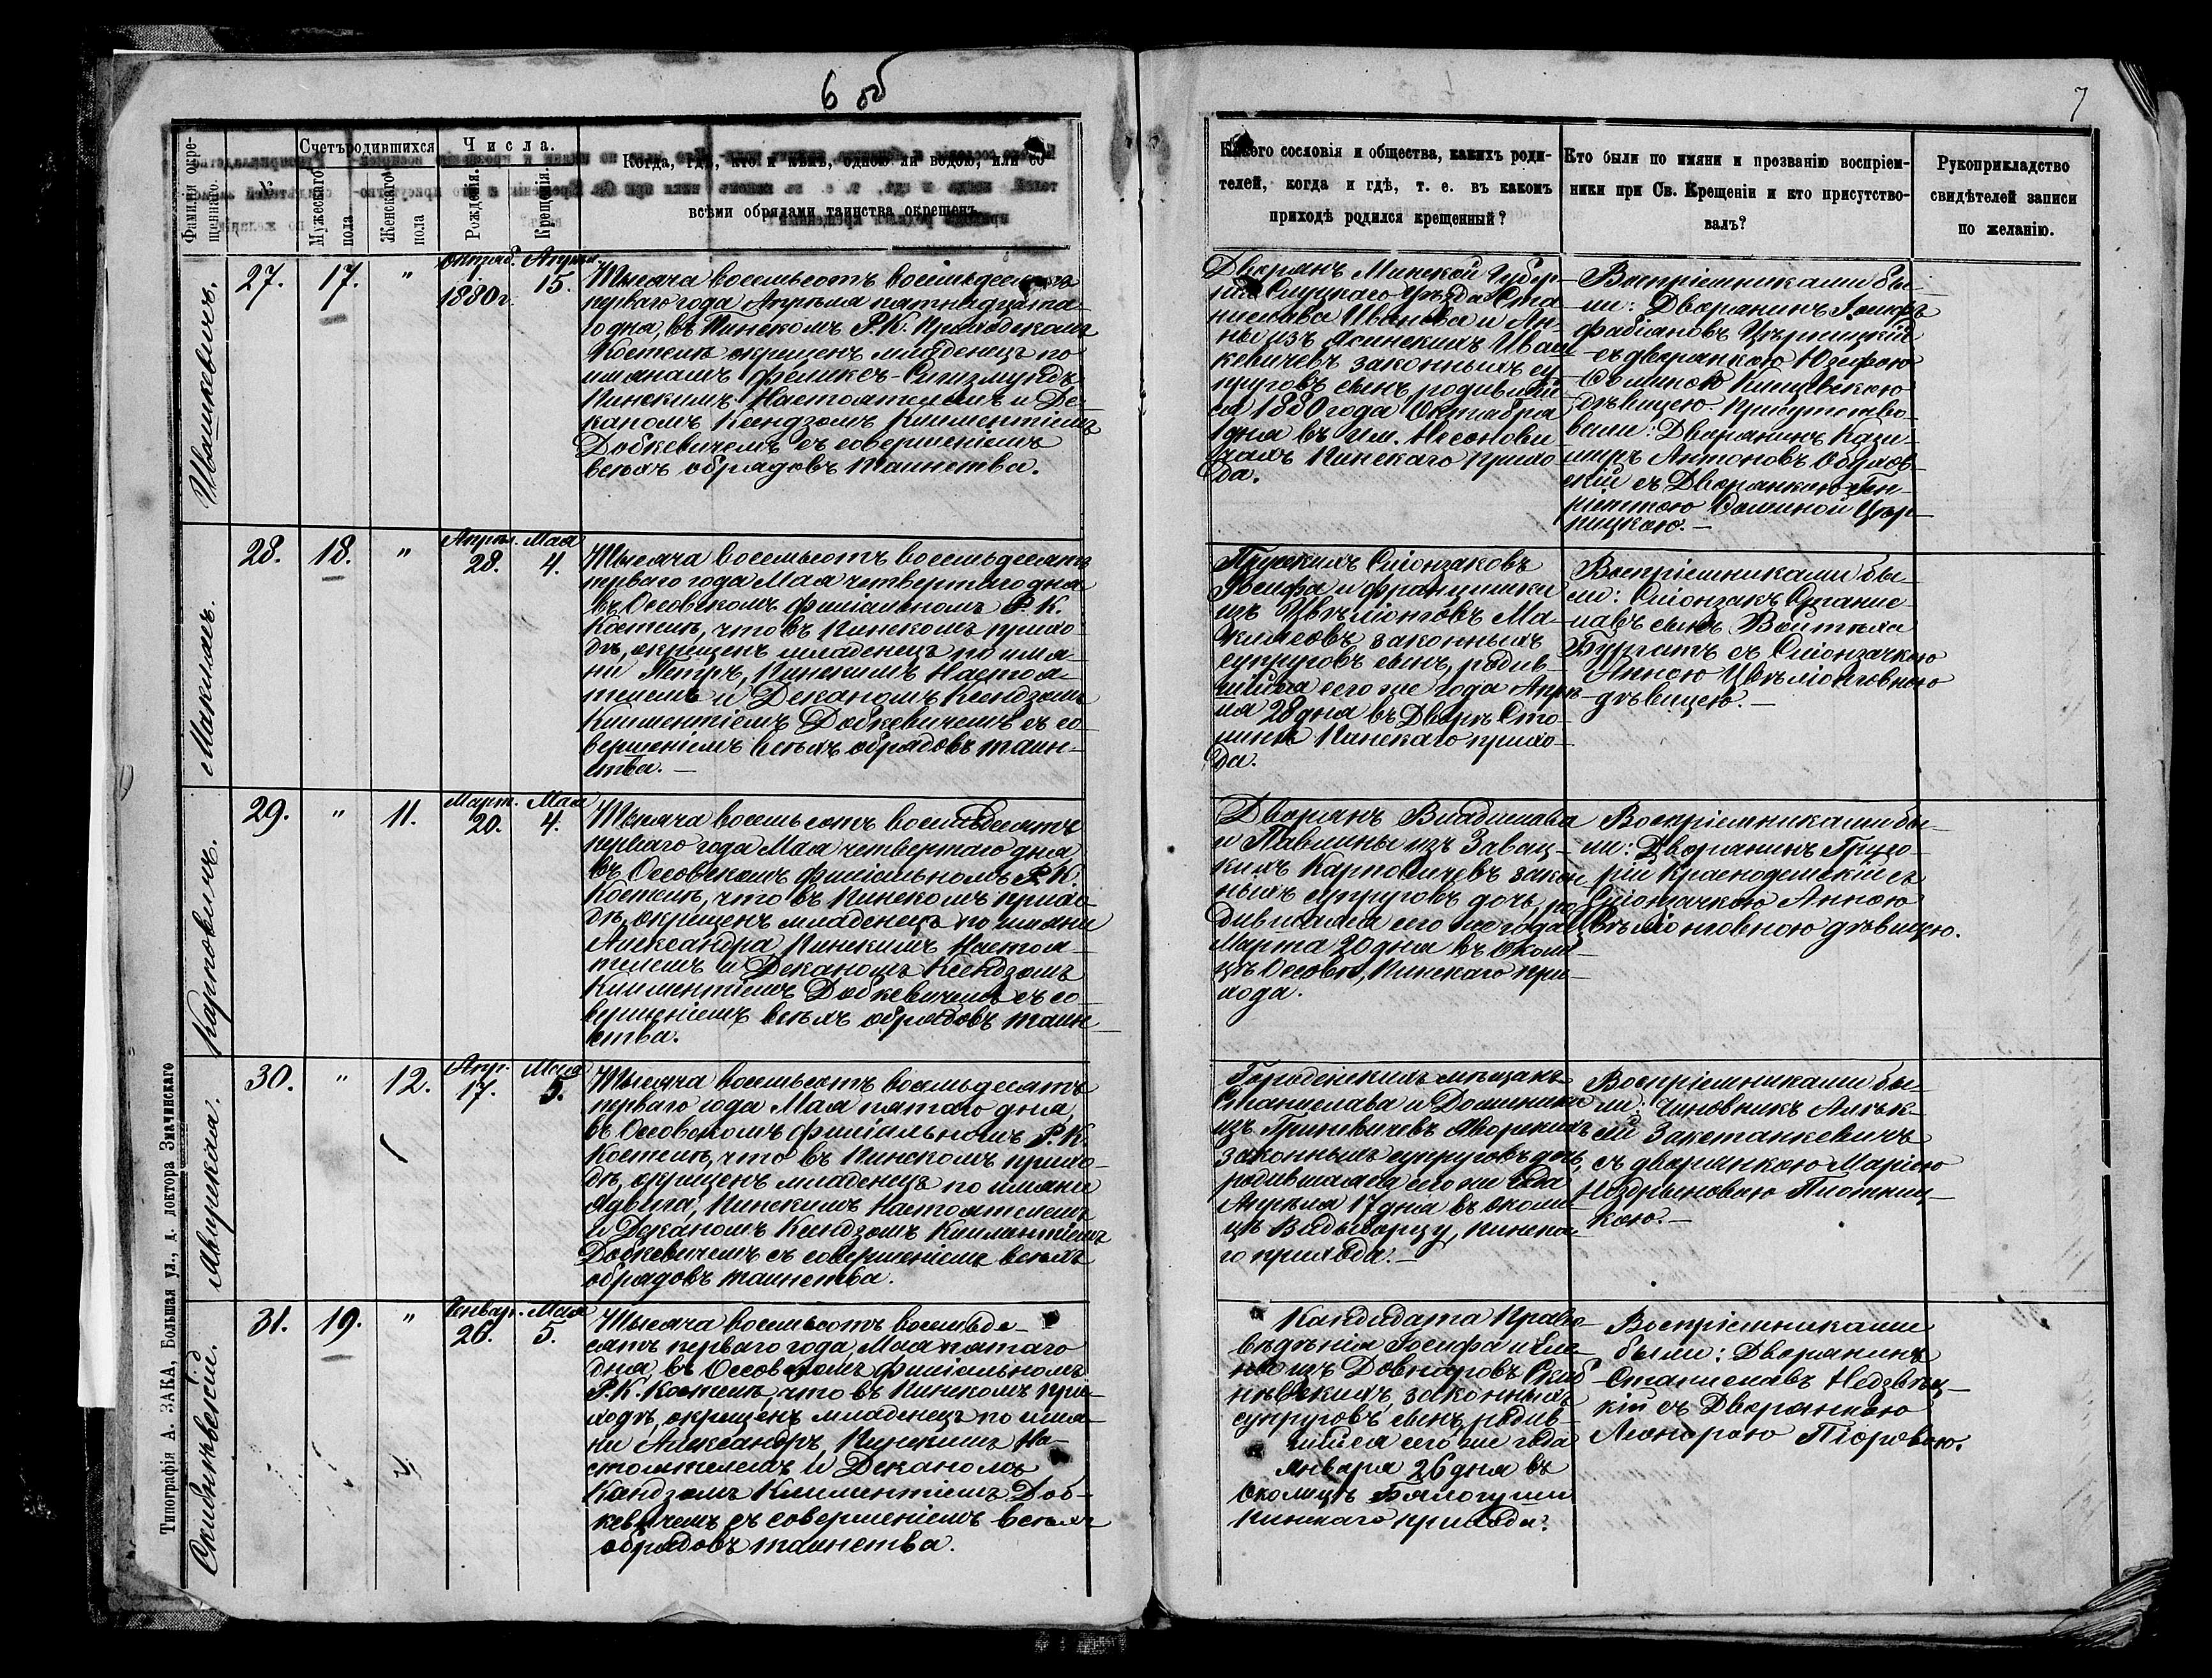 6 об
Фамилія окре-
щеннаго.
№
Счетъ родившихся
Мужескаго
пола
Женскаго
пола
Числа.
Рожденія.
Крещенія.
Когда, гдѣ, кто и кѣмъ, одною ли водою, или со
всѣми обрядами таинства окрещенъ
Ивашкевичъ.
27.
17.
"
Октяб.
1.
1880 г.
Апрѣля
15.
Тысяча восемьсотъ восемьдесятъ
перваго года Апрѣля пятнадцата-
го дня, въ Пинскомъ Р. К. Приходскомъ
Костелѣ окрещенъ младенецъ по
имянамъ Феликсъ-Сигизмундъ
Пинскимъ Настоятелемъ и Де-
каномъ Ксендзомъ Климентіемъ
Добкевичемъ съ совершеніемъ
всѣхъ обрядовъ таинства.
Макилъ.
28.
18.
"
Апрѣл.
28.
Мая
4.
Тысяча восемьсотъ восемьдесятъ
перваго года Мая четвертаго дня
въ Оссовскомъ филіальномъ Р. К.
Костелѣ, что въ Пинскомъ прихо-
дѣ, окрещенъ младенецъ по имя-
ни Петръ, Пинскимъ Настоя-
телемъ и Деканомъ Ксендзомъ
Климентіемъ Добкевичемъ съ со-
вершеніемъ всѣхъ обрядовъ таин-
ства. —
Карповичъ.
29.
"
11.
Март.
20.
Мая
4.
Тысяча восемьсотъ восемьдесятъ
перваго года Мая четвертаго дня,
въ Оссовскомъ филіальномъ Р. К.
Костелѣ, что въ Пинскомъ прихо-
дѣ, окрещенъ младенецъ по имяни
Александра, Пинскимъ Настоя-
телемъ и Деканомъ Ксендзомъ
Климентіемъ Добкевичемъ съ со-
вершеніемъ всѣхъ обрядовъ таин-
ства.
30.
"
12.
Апр.
17.
Мая
5.
Тысяча восемьсотъ восемьдесятъ
перваго года Мая пятаго дня,
въ Оссовскомъ филіальномъ Р. К.
костелѣ, что въ Пинскомъ прихо-
дѣ, окрещенъ младенецъ по имяни
Ядвига, Пинскимъ Настоятелемъ
и Деканомъ Ксендзомъ Климентіемъ
Добкевичемъ съ совершеніемъ всѣхъ
обрядовъ таинства.
31.
19.
"
Генвар.
26.
Мая
5.
Тысяча восемьсотъ восемьде-
сятъ перваго года, Мая пятаго
дня въ Оссовскомъ филіальномъ
Р. К. Костелѣ, что въ Пинскомъ при-
ходѣ, окрещенъ младенецъ по имя-
ни Александръ, Пинскимъ На-
стоятелемъ и Деканомъ
Ксендзомъ Климентіемъ Доб-
кевичемъ съ совершеніемъ всѣхъ
обрядовъ таинства.
Типографія А. ЗАКА, Большая ул., д. доктора Значинскаго
7
Какого сословія и общества, какихъ роди-
телей, когда и гдѣ, т. е. въ какомъ
приходѣ родился крещенный?
Кто были по имяни и прозванію воспріем-
ники при Св. Крещеніи и кто присутство-
валъ?
Рукоприкладство
свидѣтелей записи
по желанію.
Дворянъ Минской Губер-
ніи Слуцкаго Уѣзда Ста-
нислава Иванова и Ан-
ны изъ Ясинскихъ Иваш-
кевичевъ законныхъ су-
пруговъ сынъ, родившій-
ся 1880 года Октября
1 дня въ им.
Пинскаго прихо-
да.
Воспріемниками бы-
ли: Дворянинъ Іосифъ
Фабіановъ
съ дворянкою Юзефою
дѣвицею. Присутство-
вали: Дворянинъ Кази-
миръ Антоновъ
съ Дворянкою Ген-
ріеттою
Іосифа и Францишки
законныхъ
супруговъ сынъ, родив-
шійся сего же года Апрѣ-
ля 28 дня въ Дворѣ Сто-
Пинскаго прихо-
да.
Воспріемниками бы-
ли:
съ
Анною
дѣвицею. —
Дворянъ Владислава
и Павлины изъ Завац-
кихъ Карповичевъ закон-
ныхъ супруговъ дочь, ро-
дившаяся сего же года
Марта 20 дня въ Околи-
цѣ Оссовѣ, Пинскаго при-
хода.
Воспріемниками бы-
ли: Дворянинъ Григо-
рій Краснодемскій съ
Анною
дѣвицею.
мѣщанъ
Станислава и Доминики
изъ Гриневичевъ Яворскихъ
законныхъ супруговъ дочь,
родившаяся сего же года
Апрѣля 17 дня въ околи-
цѣ Пинска-
го прихода. —
Воспріемниками бы-
ли: Чиновникъ Алек-
сѣй
съ дворянкою Маріею
Кандидата Право-
вѣдѣнія Іосифа и Еле-
ны изъ Довнаровъ
законныхъ
супруговъ сынъ, родив-
шійся сего же года
Января 26 дня въ
Околицѣ
Пинскаго прихода.
Воспріемниками
были: Дворянинъ
Станиславъ Недзвѣц-
кій съ Дворянкою
Леонорою